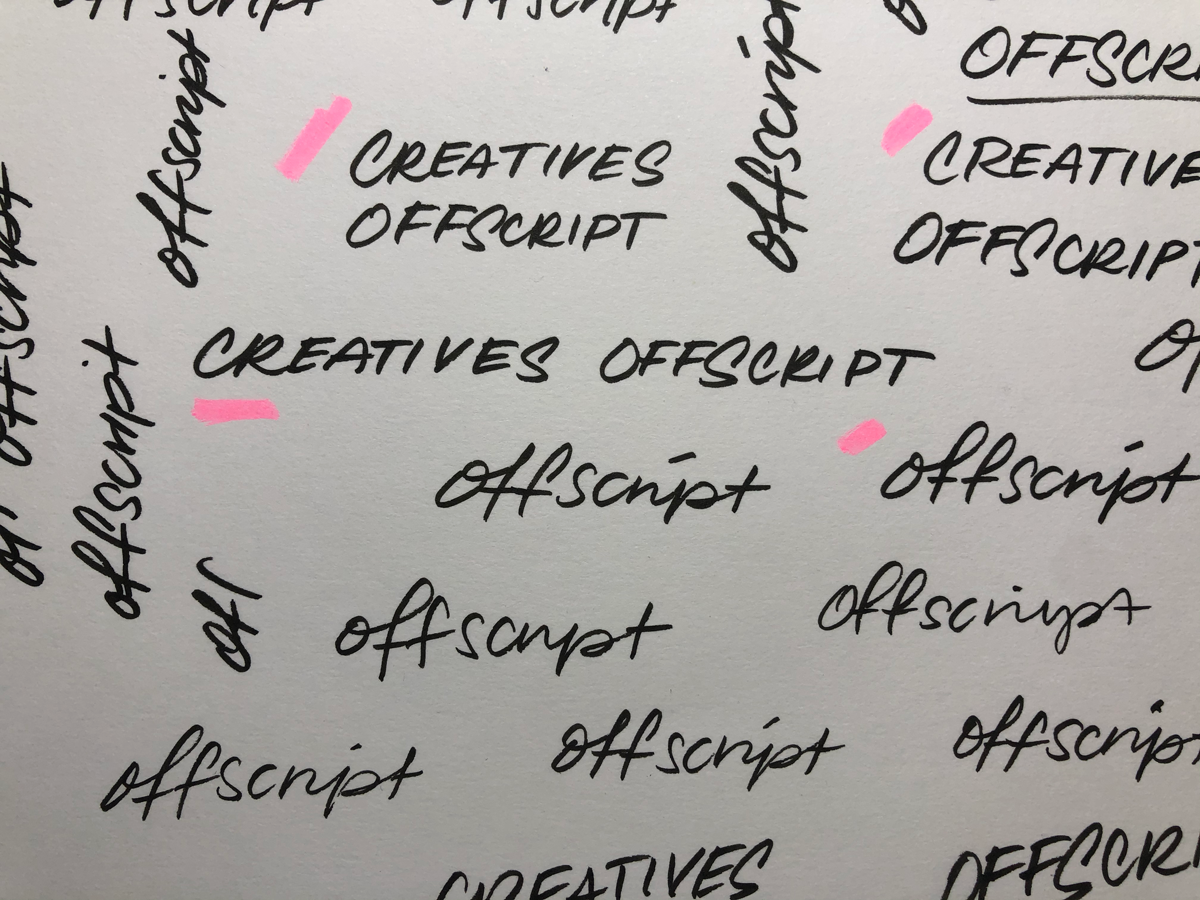 offscript
offscript
offscript
offscript
OFFSCRI
CREATIVES
OFFSCRIPT
CREATIVE
OFFSCRIPT
offscript
CREATIVES OFFSCRIPT
of
offscript
offscript
offscript
off
offscript
offscript
offscript
offscript
offscript
CREATIVES
OFFSCRI